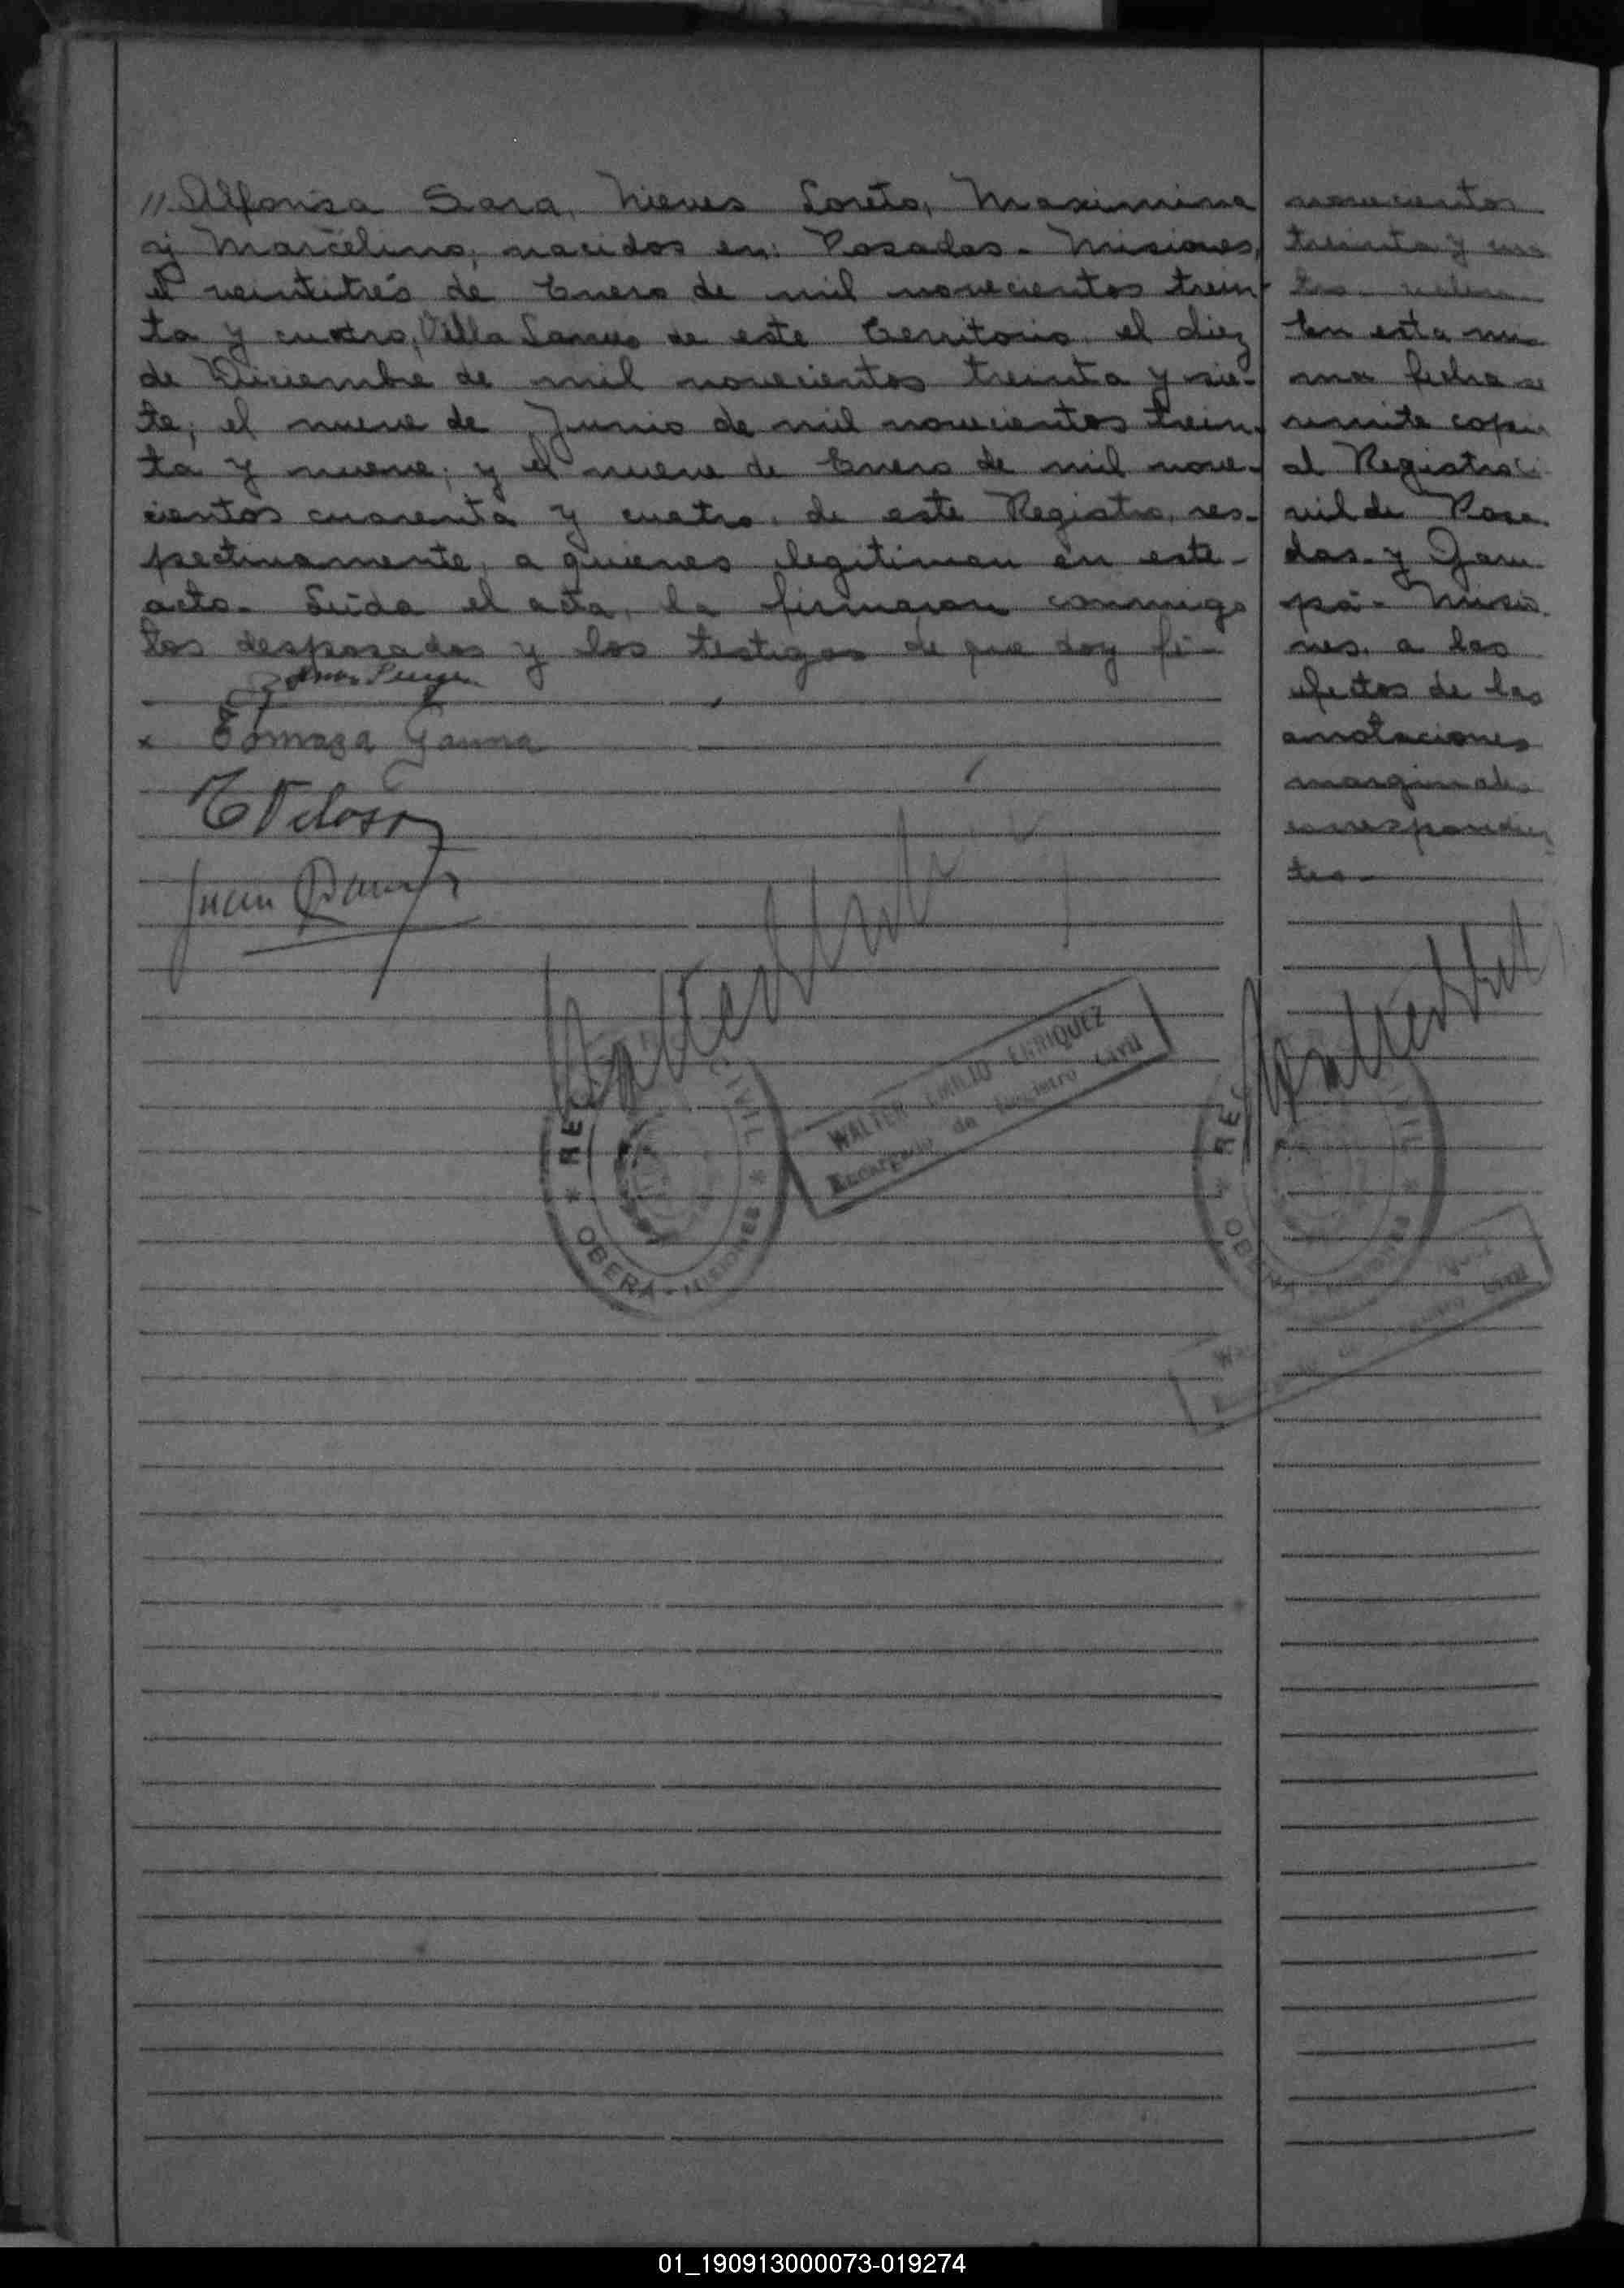 // Alfonsa Sara, Nieves Loreto, Maximina
y Marcelino, nacidos en: Posadas - Misiones,
el veintitrés de Enero de mil novecientos trein-
ta y cuatro, Villa de este Territorio, el diez
de Diciembre de mil novecientos treinta y sie-
te; el nueve de Junio de mil novecientos trein-
ta y nueve; y el nueve de Enero de mil nove-
cientos cuarenta y cuatro, de este Registro, res-
pectivamente, a quienes legitiman en este-
acto. Leída el acta, la firmaron conmigo
los desposados y los testigos de que doy fé-
x Tomaza Gauna
Juan
REG CIVIL
* OBERÁ - MISIONES *
WALTER EMILIO ENRIQUEZ
Encargado de Registro Civil
novecientos
treinta y cua
tro
En esta mis
ma fecha se
remite copia
al Registro Ci
vil de Posa
das y Garu
pá - Misio
nes, a los
efectos de las
anotaciones
marginales
correspondien
tes-
REG CIVIL
* OBERÁ - MISIONES *
Civil
01_190913000073-019274